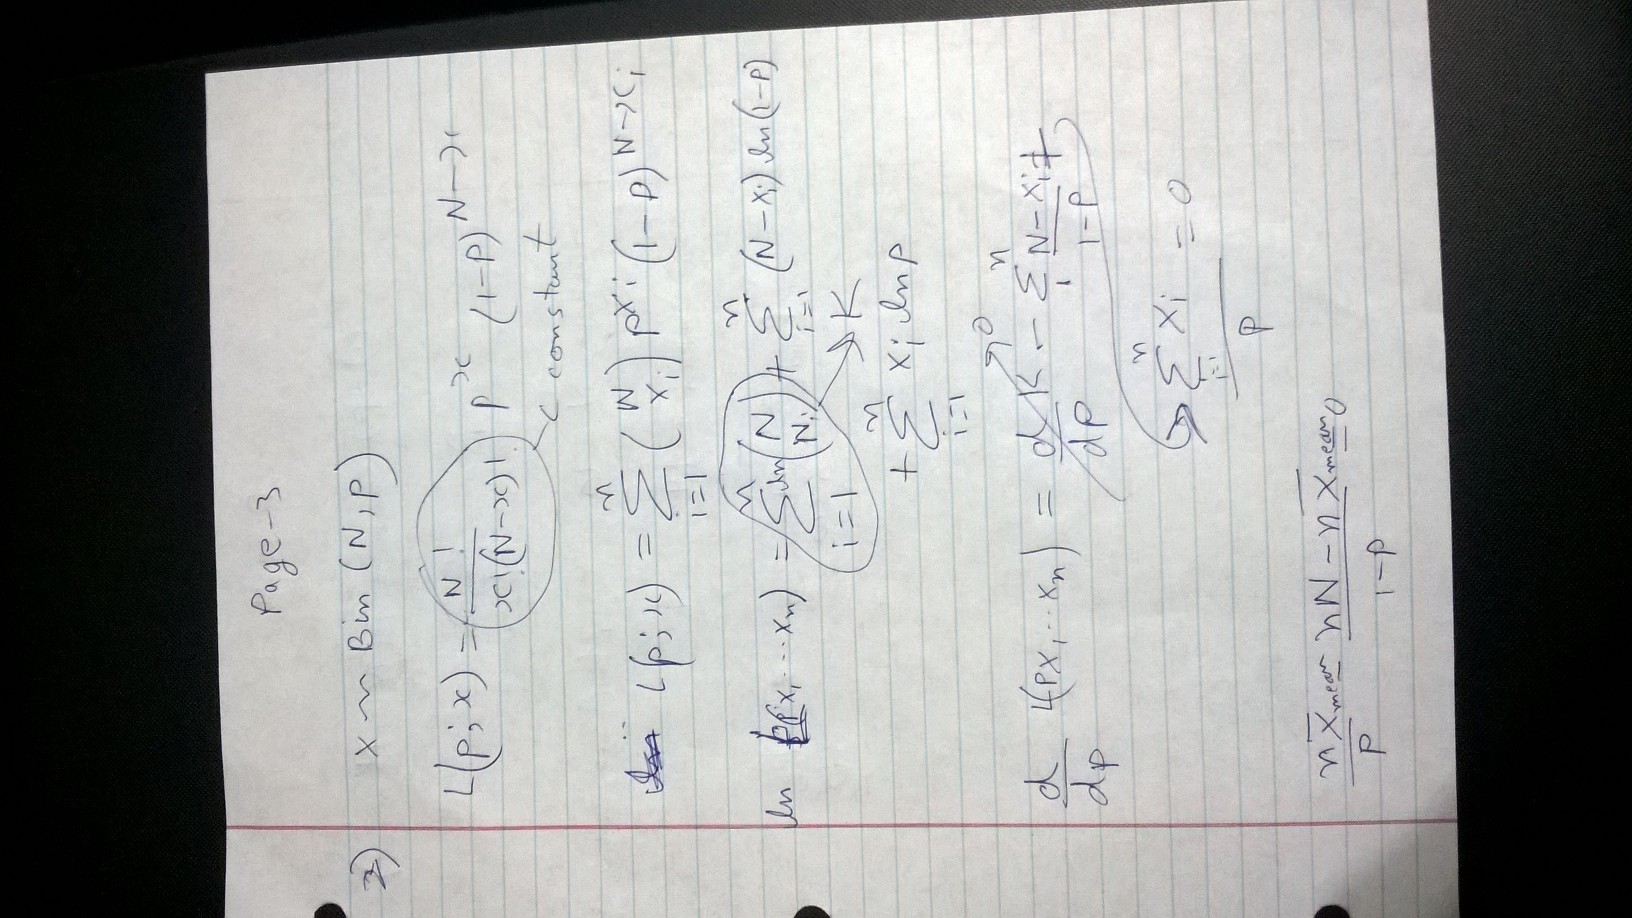 Page-3
2) X ~ Bin (N, P)
L(p; x) = N! / x!(N-x)! p^x (1-P)^N-x
C constant
L(p; x) = Σ_{i=1}^{n} (N x_i) p^{x_i} (1-P)^{N-x_i}
ln L(P x, ... x_n) = Σ_{i=1}^{n} ln (N N_i) + Σ_{i=1}^{n} (N-x_i) ln (1-P)
→ K
+ Σ_{i=1}^{n} x_i ln p
d/dp L(P x, .. x_n) = d/dp K → 0 - Σ_{i}^{n} N-x_i / 1-P +
→ Σ_{i=1}^{n} x_i / P = 0
n x̄ mean / P - nN - n x̄ mean / 1-P = 0